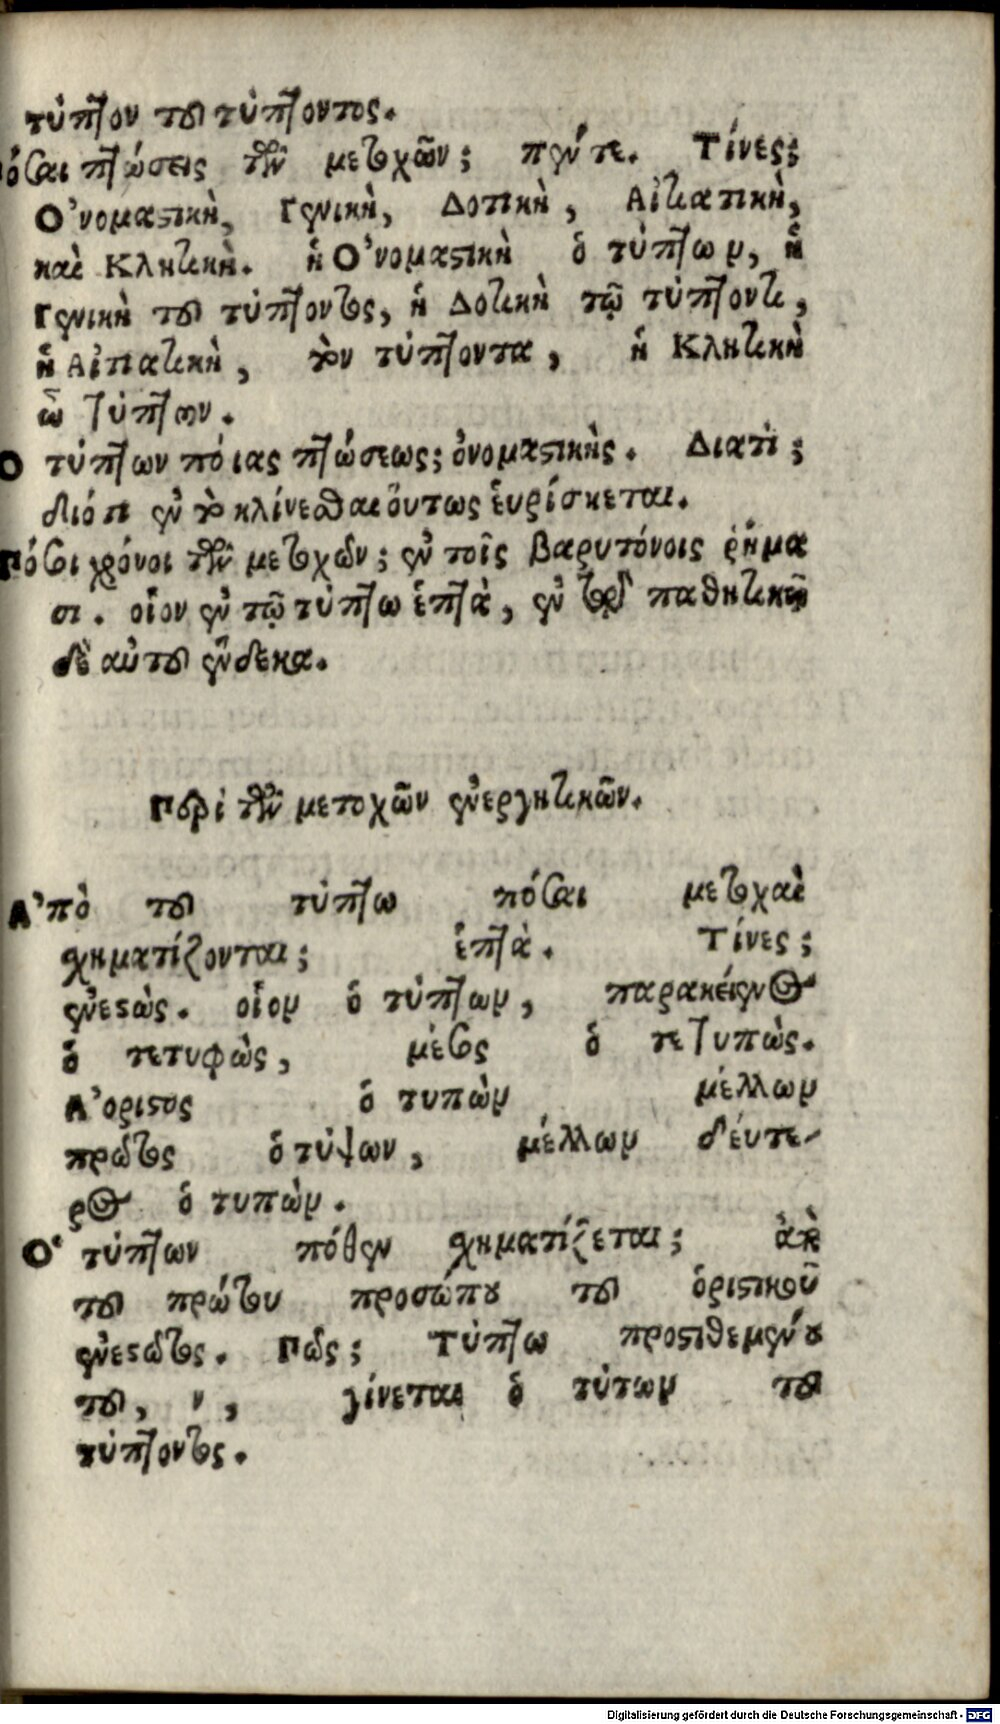 τύπτον τοῦ τύπτοντος.
Πόσαι πτώσεις τῶν μετοχῶν; πέντε. Τίνες;
Ὀνομαστικὴ, Γενικὴ, Δοτικὴ, Αἰτιατικὴ,
καὶ Κλητικὴ. ἡ Ὀνομαστικὴ ὁ τύπτων, ἡ
Γενικὴ τοῦ τύπτοντος, ἡ Δοτικὴ τῷ τύπτοντι,
ἡ Αἰτιατικὴ, τὸν τύπτοντα, ἡ Κλητικὴ
ὦ τύπτων.
Ο τύπτων πόιας πτώσεως; ὀνομαστικῆς. Διατὶ;
διότι ἐν τῷ κλίνεσθαι ὅυτως ἑυρίσκεται.
Πόσοι χρόνοι τῶν μετοχῶν; ἐν τοῖς βαρυτόνοις ῥήμα
σι. οἷον ἐν τῷ τύπτω ἑπτὰ, ἐν τῷ παθητικῷ
δὲ αὐτοῦ ἕνδεκα.
Περὶ τῶν μετοχῶν ἐνεργητικῶν.
Ἀπὸ τοῦ τύπτω πόσαι μετοχαὶ
σχηματίζονται; ἑπτὰ. Τίνες;
ἐνεστὼς. οἷον ὁ τύπτων, παρακείμενος
ὁ τετυφὼς, μέσος ὁ τετυπὼς.
Ἀόριστος ὁ τυπὼν μέλλων
πρῶτος ὁ τύψων, μέλλων δέυτε-
ρος ὁ τυπὼν.
Ὁ τύπτων πόθεν σχηματίζεται; ἀπὸ
τοῦ πρώτου προσώπου τοῦ ὁριστικοῦ
ἐνεστῶτος. Πῶς; Τύπτω προστιθεμένου
τοῦ, ν, γίνεται ὁ τύτων τοῦ
τύπτοντος.
Digitalisierung gefördert durch die Deutsche Forschungsgemeinschaft - DFG